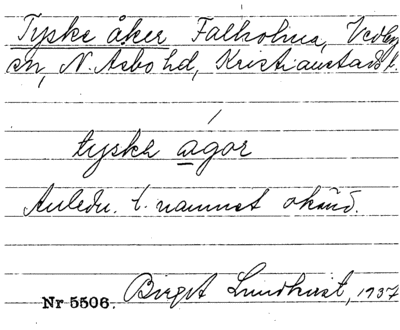 Tyske åker Falholma, Vedby
sn, N. Åsbo hd, Kristianstads l.
tyske agor
Anledn. t. namnet okänd.
Nr 5506. Birgit Lundkvist, 1937